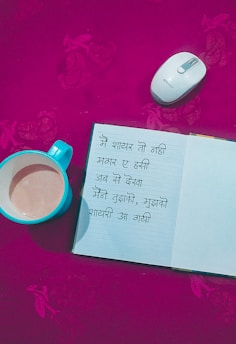 मैं शायर तो नही
मगर ए हसी
जब से देखा
मैंने तुझको, मुझको
शायरी आ गयी